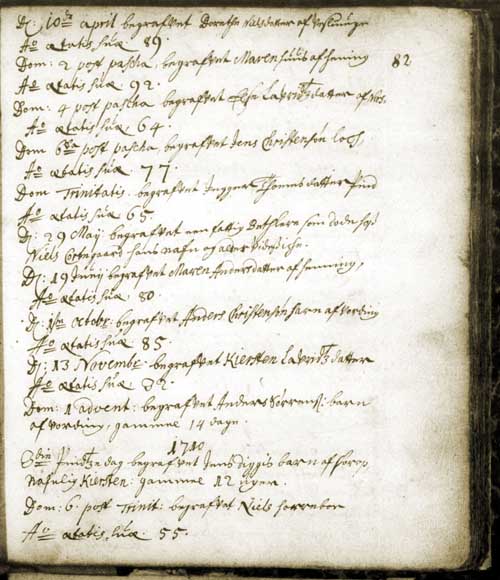 D: 10de april begrafvet Dorethe Nielsdatter af
Ao ætatis suæ 89.
Dom: 2 post pascha, begrafvet Maren af heming 82
Ao ætatis suæ 92.
Dom: 4 post pascha begrafvet Lavritzdatter af
Ao ætatis suæ 64.
Dom 6te post pascha begrafvet Jens Christensøn Loch
Ao ætatis suæ 77.
Dom Trinitatis. begrafvet Thomsdatter
Ao ætatis suæ 65.
D: 29 Maij begrafvet een fattig som døde hos
Niels hans nafn og alder
D: 19 Junij begrafvet Maren Andersdatter af heming,
Ao ætatis suæ 80.
D: 1te octobr. begrafvet Anders Christensøn af vording
Ao ætatis suæ 85.
D: 13 Novembr. begrafvet Kiersten Lavritzdatter
Ao ætatis suæ
Dom: 1 advent: begrafvet Anders Sørrens: barn
af vording, gammel 14 dage.
1710
3den Pindtzedag begrafvet Jens barn af
Nafnlig Kiersten: gammel 12 uger.
Dom: 6. post Trinit: begrafvet Niels
Ao ætatis suæ 55.